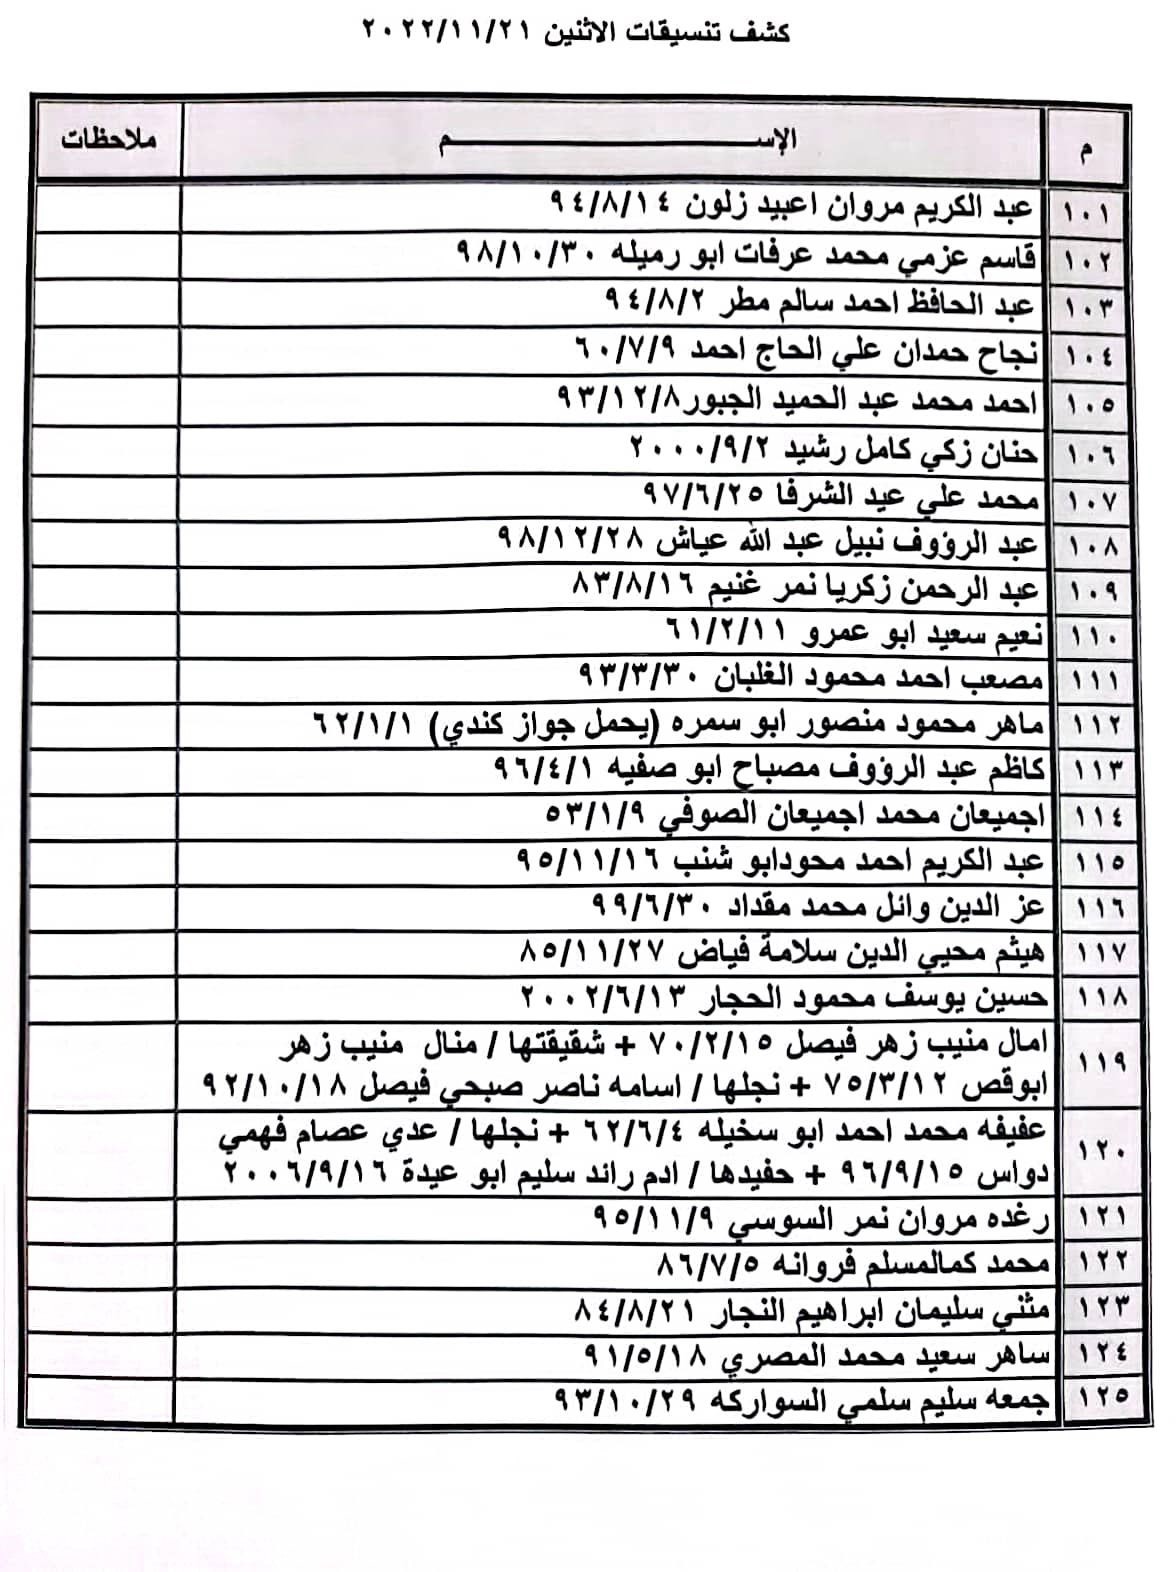 كشف تنسيقات الاثنين ٢٠٢٢/١١/٢١
م الإســـــــــــــــم ملاحظات
١٠١ عبد الكريم مروان اعبيد زلون ٩٤/٨/١٤
١٠٢ قاسم عزمي محمد عرفات ابو رميله ٩٨/١٠/٣٠
١٠٣ عبد الحافظ احمد سالم مطر ٩٤/٨/٢
١٠٤ نجاح حمدان علي الحاج احمد ٦٠/٧/٩
١٠٥ احمد محمد عبد الحميد الجبور٩٣/١٢/٨
١٠٦ حنان زكي كامل رشيد ٢٠٠٠/٩/٢
١٠٧ محمد علي عيد الشرفا ٩٧/٦/٢٥
١٠٨ عبد الرؤوف نبيل عبد الله عياش ٩٨/١٢/٢٨
١٠٩ عبد الرحمن زكريا نمر غنيم ٨٣/٨/١٦
١١٠ نعيم سعيد ابو عمرو ٦١/٢/١١
١١١ مصعب احمد محمود الغلبان ٩٣/٣/٣٠
١١٢ ماهر محمود منصور ابو سمره (يحمل جواز كندي) ٦٢/١/١
١١٣ كاظم عبد الرؤوف مصباح ابو صفيه ٩٦/٤/١
١١٤ اجميعان محمد اجميعان الصوفي ٥٣/١/٩
١١٥ عبد الكريم احمد محودابو شنب ٩٥/١١/١٦
١١٦ عز الدين وائل محمد مقداد ٩٩/٦/٣٠
١١٧ هيثم محيي الدين سلامة فياض ٨٥/١١/٢٧
١١٨ حسين يوسف محمود الحجار ٢٠٠٢/٦/١٣
١١٩ امال منيب زهر فيصل ٧٠/٢/١٥ + شقيقتها / منال منيب زهر
ابوقص ٧٥/٣/١٢ + نجلها / اسامه ناصر صبحي فيصل ٩٢/١٠/١٨
١٢٠ عفيفه محمد احمد ابو سخيله ٦٢/٦/٤ + نجلها / عدي عصام فهمي
دواس ٩٦/٩/١٥ + حفيدها / ادم رائد سليم ابو عيدة ٢٠٠٦/٩/١٦
١٢١ رغده مروان نمر السوسي ٩٥/١١/٩
١٢٢ محمد كمالمسلم فروانه ٨٦/٧/٥
١٢٣ مثني سليمان ابراهيم النجار ٨٤/٨/٢١
١٢٤ ساهر سعيد محمد المصري ٩١/٥/١٨
١٢٥ جمعه سليم سلمي السواركه ٩٣/١٠/٢٩